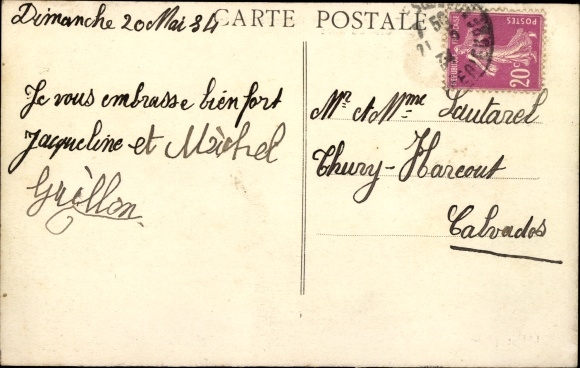 Dimanche 20 Mai 34
CARTE POSTALE
Je vous embrasse bien fort
Jacqueline et Michel
Grillon
POSTES
20c
Mr et Mme Lautarel
Thury-Harcout
Calvados